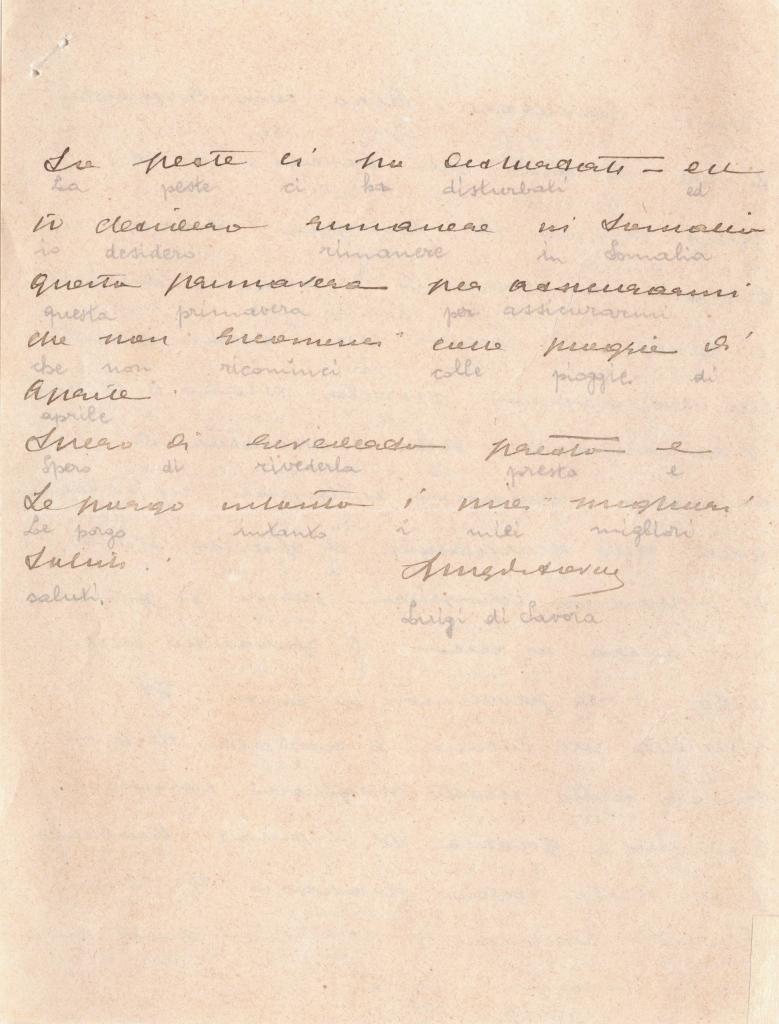 La peste ci ha disturbati – ed
La peste ci ha disturbati ed
io desidero rimanere in Somalia
io desidero rimanere in Somalia
questa primavera per assicurarmi
questa primavera per assicurarmi
che non ricominci colle pioggie di
che non ricominci colle pioggie di
Aprile.
aprile
Spero di rivederla presto e
Spero di rivederla presto e
Le porgo intanto i miei migliori
Le porgo intanto i miei migliori
Saluti.
saluti.
Luigi di Savoia
Luigi di Savoia